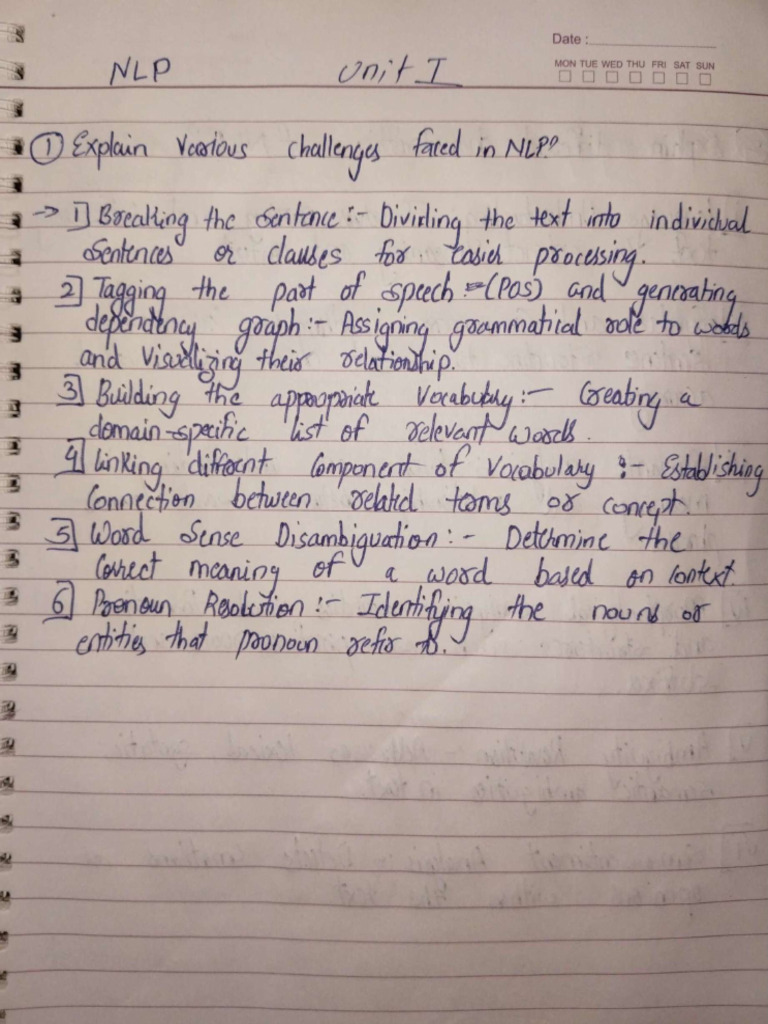 Date :
MON TUE WED THU FRI SAT SUN
NLP Unit I
① Explain Various challenges faced in NLP?
-> 1] Breaking the Sentence :- Dividing the text into individual
Sentences or clauses for easier processing.
2] Tagging the part of speech :-(POS) and generating
dependency graph:- Assigning grammatical role to words
and Visualizing their relationship.
3] Building the appropriate Vocabulary:- Creating a
domain-specific list of relevant words.
4] Linking different Component of Vocabulary :- Establishing
Connection between related terms or concept.
5] Word Sense Disambiguation :- Determine the
Correct meaning of a word based on context.
6] Pronoun Resolution :- Identifying the nouns or
entities that pronoun refer to.